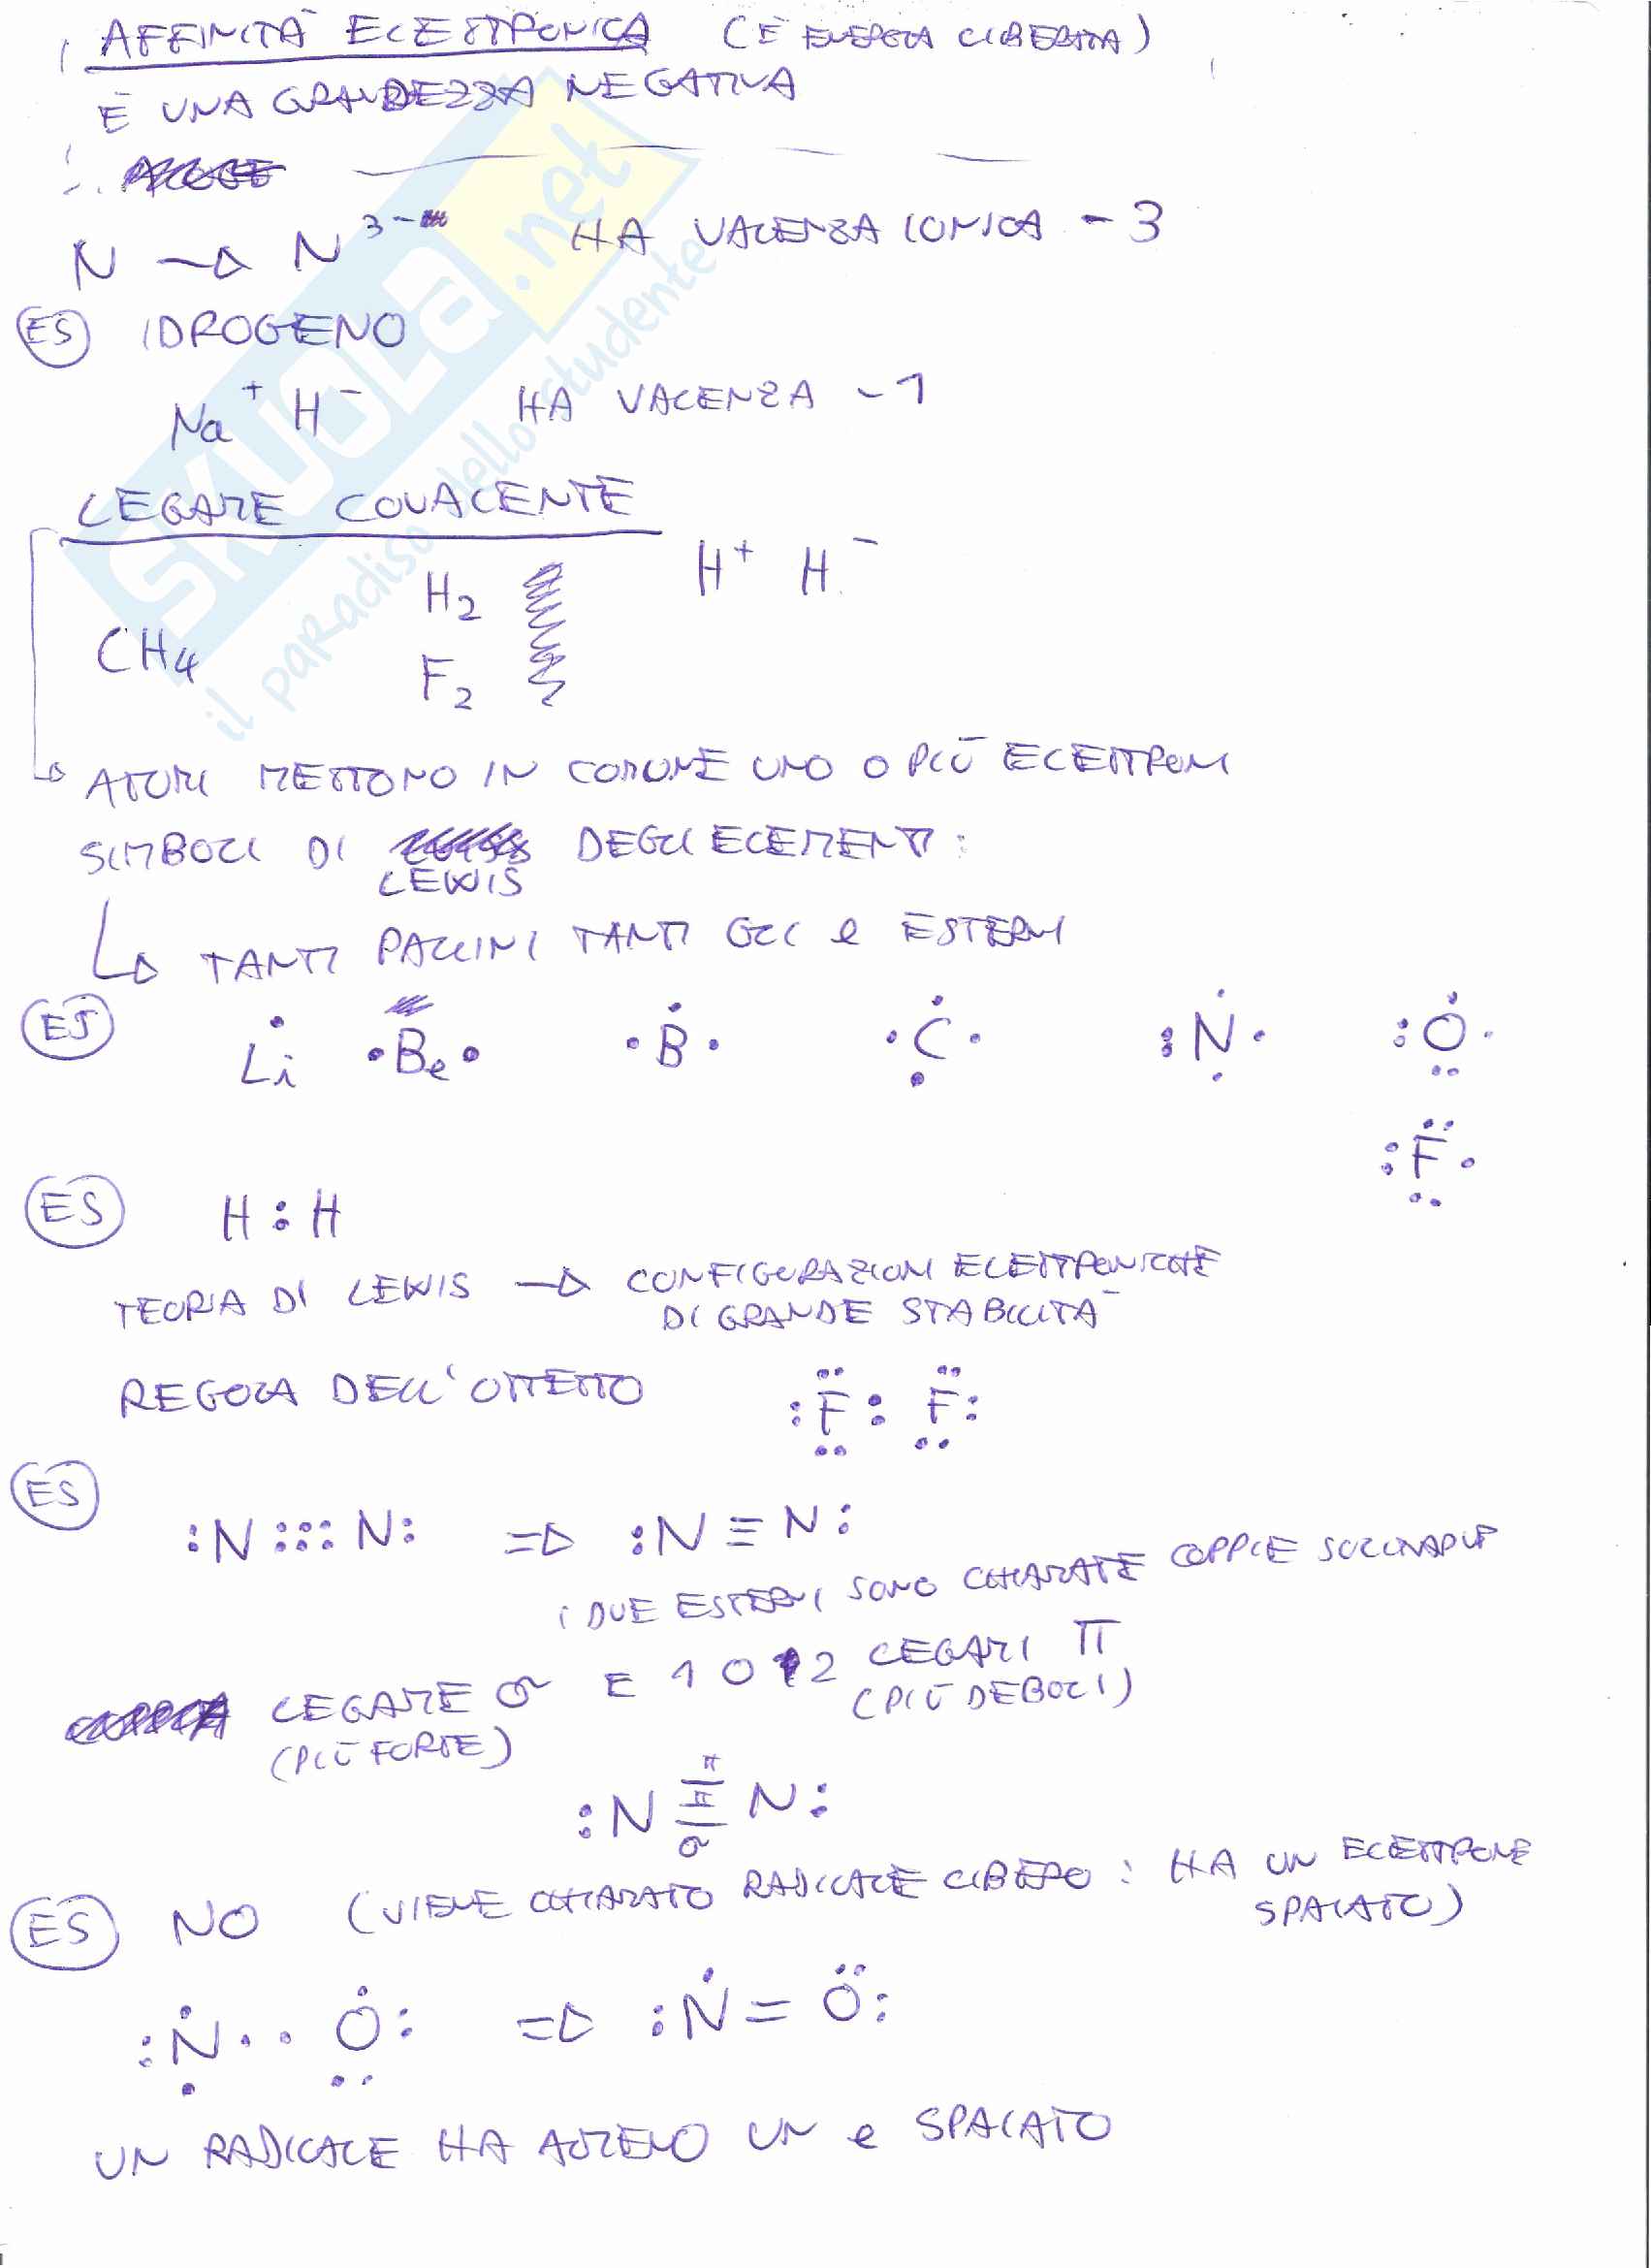 AFFINITÀ ELETTRONICA (È ENERGIA LIBERATA)
È UNA GRANDEZZA NEGATIVA
N → N³⁻ HA VALENZA IONICA -3
ES IDROGENO
Na⁺ H⁻ HA VALENZA -1
LEGAME COVALENTE
H₂ H⁺ H⁻
CH₄ F₂
→ ATOMI METTONO IN COMUNE UNO O PIÙ ELETTRONI
SIMBOLI DI LEWIS DEGLI ELEMENTI:
↳ TANTI PALLINI TANTI GLI e ESTERNI
ES Li Be B C N O
F
ES H:H
TEORIA DI LEWIS → CONFIGURAZIONI ELETTRONICHE
DI GRANDE STABILITÀ
REGOLA DELL'OTTETTO :F:F:
ES :N:::N: ⇒ :N≡N:
I DUE ESTERNI SONO CHIAMATE COPPIE SOLITARIE
LEGAME σ E 1 O 2 LEGAMI π
(PIÙ FORTE) (PIÙ DEBOLI)
:N π π σ N:
ES NO (VIENE CHIAMATO RADICALE LIBERO: HA UN ELETTRONE
SPAIATO)
:N·· O: ⇒ :N=O:
UN RADICALE HA ALMENO UN e SPAIATO
SKUOLA.net
il paradiso dello studente